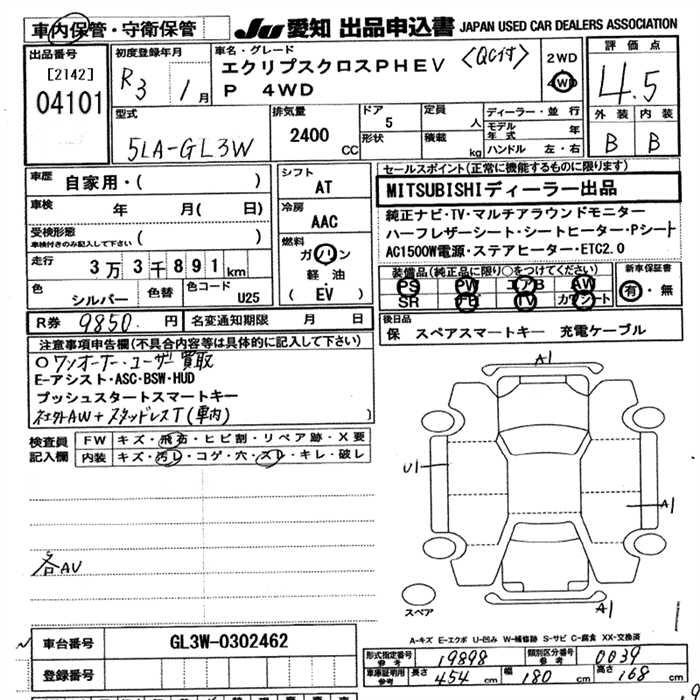 車内保管・守衛保管
JU 愛知 出品申込書 JAPAN USED CAR DEALERS ASSOCIATION
出品番号
[2142]
04101
初度登録年月
R3 1月
車名・グレード
エクリプスクロスPHEV <QC付>
P 4WD
2WD
4WD
評価点
4.5
外装 内装
B B
型式
5LA-GL3W
排気量
2400 CC
ドア
5
形状
定員
人
積載
kg
ディーラー・並行
モデル年式 年
ハンドル 左・右
車歴 自家用・( )
車検 年 月( 日)
受検形態
車検付きのみ記入して下さい ( )
走行 3万3千891km
色 シルバー 色替 色コード U25
シフト
AT
冷房
AAC
燃料
ガソリン
軽油
( EV )
セールスポイント(正常に機能するものに限ります)
MITSUBISHIディーラー出品
純正ナビ・TV・マルチアラウンドモニター
ハーフレザーシート・シートヒーター・Pシート
AC1500W電源・ステアヒーター・ETC2.0
装備品(純正品に限り○をつけてください)
PS PW エアB AW
SR ナビ TV カワシート
新車保証書
有・無
R券 9850 円 名変通知期限 月 日
後日品
保 スペアスマートキー 充電ケーブル
注意事項申告欄(不具合内容等は具体的に記入して下さい)
○ワンオーナー・ユーザー買取
E-アシスト・ASC・BSW・HUD
プッシュスタートスマートキー
社外AW+スタッドレスT(車内)
検査員記入欄
FW キズ・飛石・ヒビ割・リペア跡・X要
内装 キズ・汚レ・コゲ・穴・スレ・キレ・破レ
各AU
A1
U1
A1
スペア
A1
A-キズ E-エクボ U-凹み W-補修跡 S-サビ C-腐食 XX-交換済
車台番号 GL3W-0302462
登録番号
形式指定番号 参考 19898 類別区分番号 参考 0039
車庫証明用 参考 長さ 454 cm 幅 180 cm 高さ 168 cm